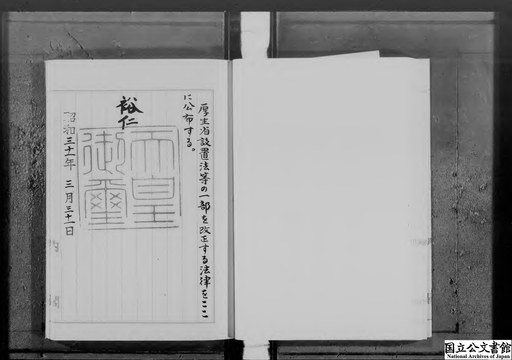 厚生省設置法等の一部を改正する法律をここ
に公布する。
裕仁
天皇
御璽
昭和三十一年三月三十一日
国立公文書館
National Archives of Japan